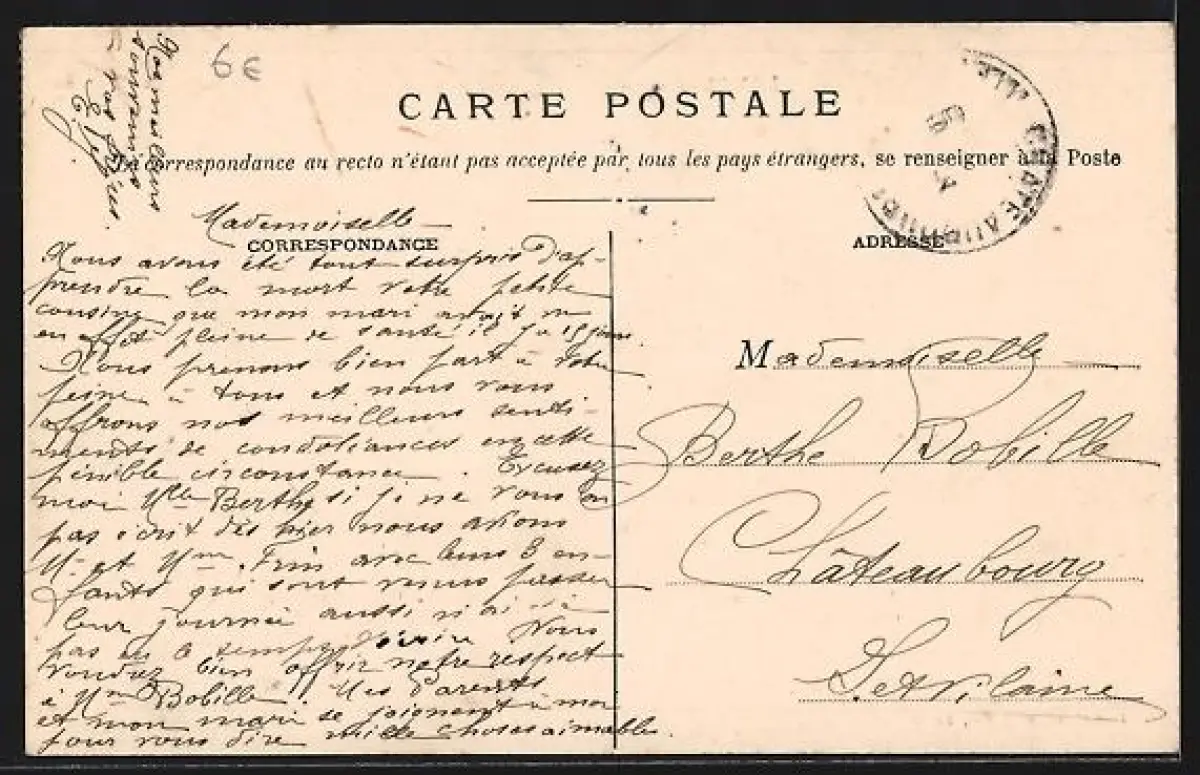 6€
Nos meilleurs
souvenirs
à vos frères
CARTE POSTALE
La correspondance au recto n'étant pas acceptée par tous les pays étrangers, se renseigner à la Poste
Mademoiselle
CORRESPONDANCE
ADRESSE
Nous avons été tout surpris d'ap-
prendre la mort votre petite
cousine que mon mari avait vu
en effet pleine de santé il y a 15 jours.
Nous prenons bien part à votre
peine à tous et nous vous
offrons nos meilleurs senti-
ments de condoliances en cette
pénible circonstance. Excusez
moi Mlle Berthe si je ne vous ai
pas écrit dès hier nous avions
Mr et Mme avec leurs 3 en-
fants qui sont venus passer
leur journée aussi n'ai
pas eu le temps d'écrire Vous
voudrez bien offrir notre respect
à Mme Bobille. Mes Parents
et mon mari se joignent à moi
pour vous dire mille choses aimables.
Mademoiselle
Berthe Bobille
Châteaubourg
Ile et Vilaine